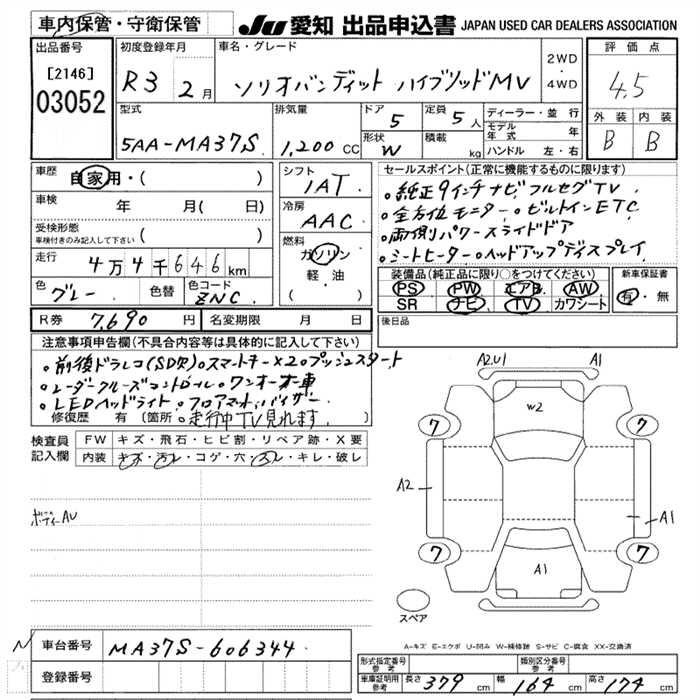 車内保管・守衛保管
JU 愛知 出品申込書 JAPAN USED CAR DEALERS ASSOCIATION
出品番号
[2146]
03052
初度登録年月
R3 2月
車名・グレード
ソリオバンディット ハイブリッドMV
2WD
・
4WD
評価点
4.5
外装 内装
B B
型式
5AA-MA37S
排気量
1,200 CC
ドア
5
定員
5人
形状
W
積載
kg
ディーラー・並行
モデル年式 年
ハンドル 左・右
車歴 自家用・( )
車検 年 月( 日)
受検形態
車検付きのみ記入して下さい ( )
走行 4万4千646km
色 グレー 色替 色コード ZNC
シフト
IAT
冷房
AAC
燃料
ガソリン
軽・油
( )
セールスポイント(正常に機能するものに限ります)
。純正9インチナビ フルセグTV
。全方位モニター 。ビルトインETC
。両側パワースライドドア
。シートヒーター 。ヘッドアップディスプレイ
装備品(純正品に限り○をつけてください)
PS PW エアB AW
SR ナビ TV カワシート
新車保証書
有・無
R券 7,690円 名変期限 月 日
後日品
注意事項申告欄(不具合内容等は具体的に記入して下さい)
。前後ドラレコ(SDR)。スマートキー×2。プッシュスタート
。レーダークルーズコントロール。ワンオーナー車
。LEDヘッドライト。フロアマット・バイザー
修復歴 有 (箇所 。走行中TV見れます
検査員記入欄
FW キズ・飛石・ヒビ割・リペア跡・X要
内装 キズ・汚レ・コゲ・穴・スレ・キレ・破レ
ボディーAU
A2.U1 A1
W2
7 7
A2 A1
7 7
A1
スペア
A-キズ E-エクボ U-凹み W-補修跡 S-サビ C-腐食 XX-交換済
車台番号 MA37S-606344
登録番号
形式指定番号
参考
類別区分番号
参考
車庫証明用
参考
長さ 379 cm 幅 164 cm 高さ 174 cm